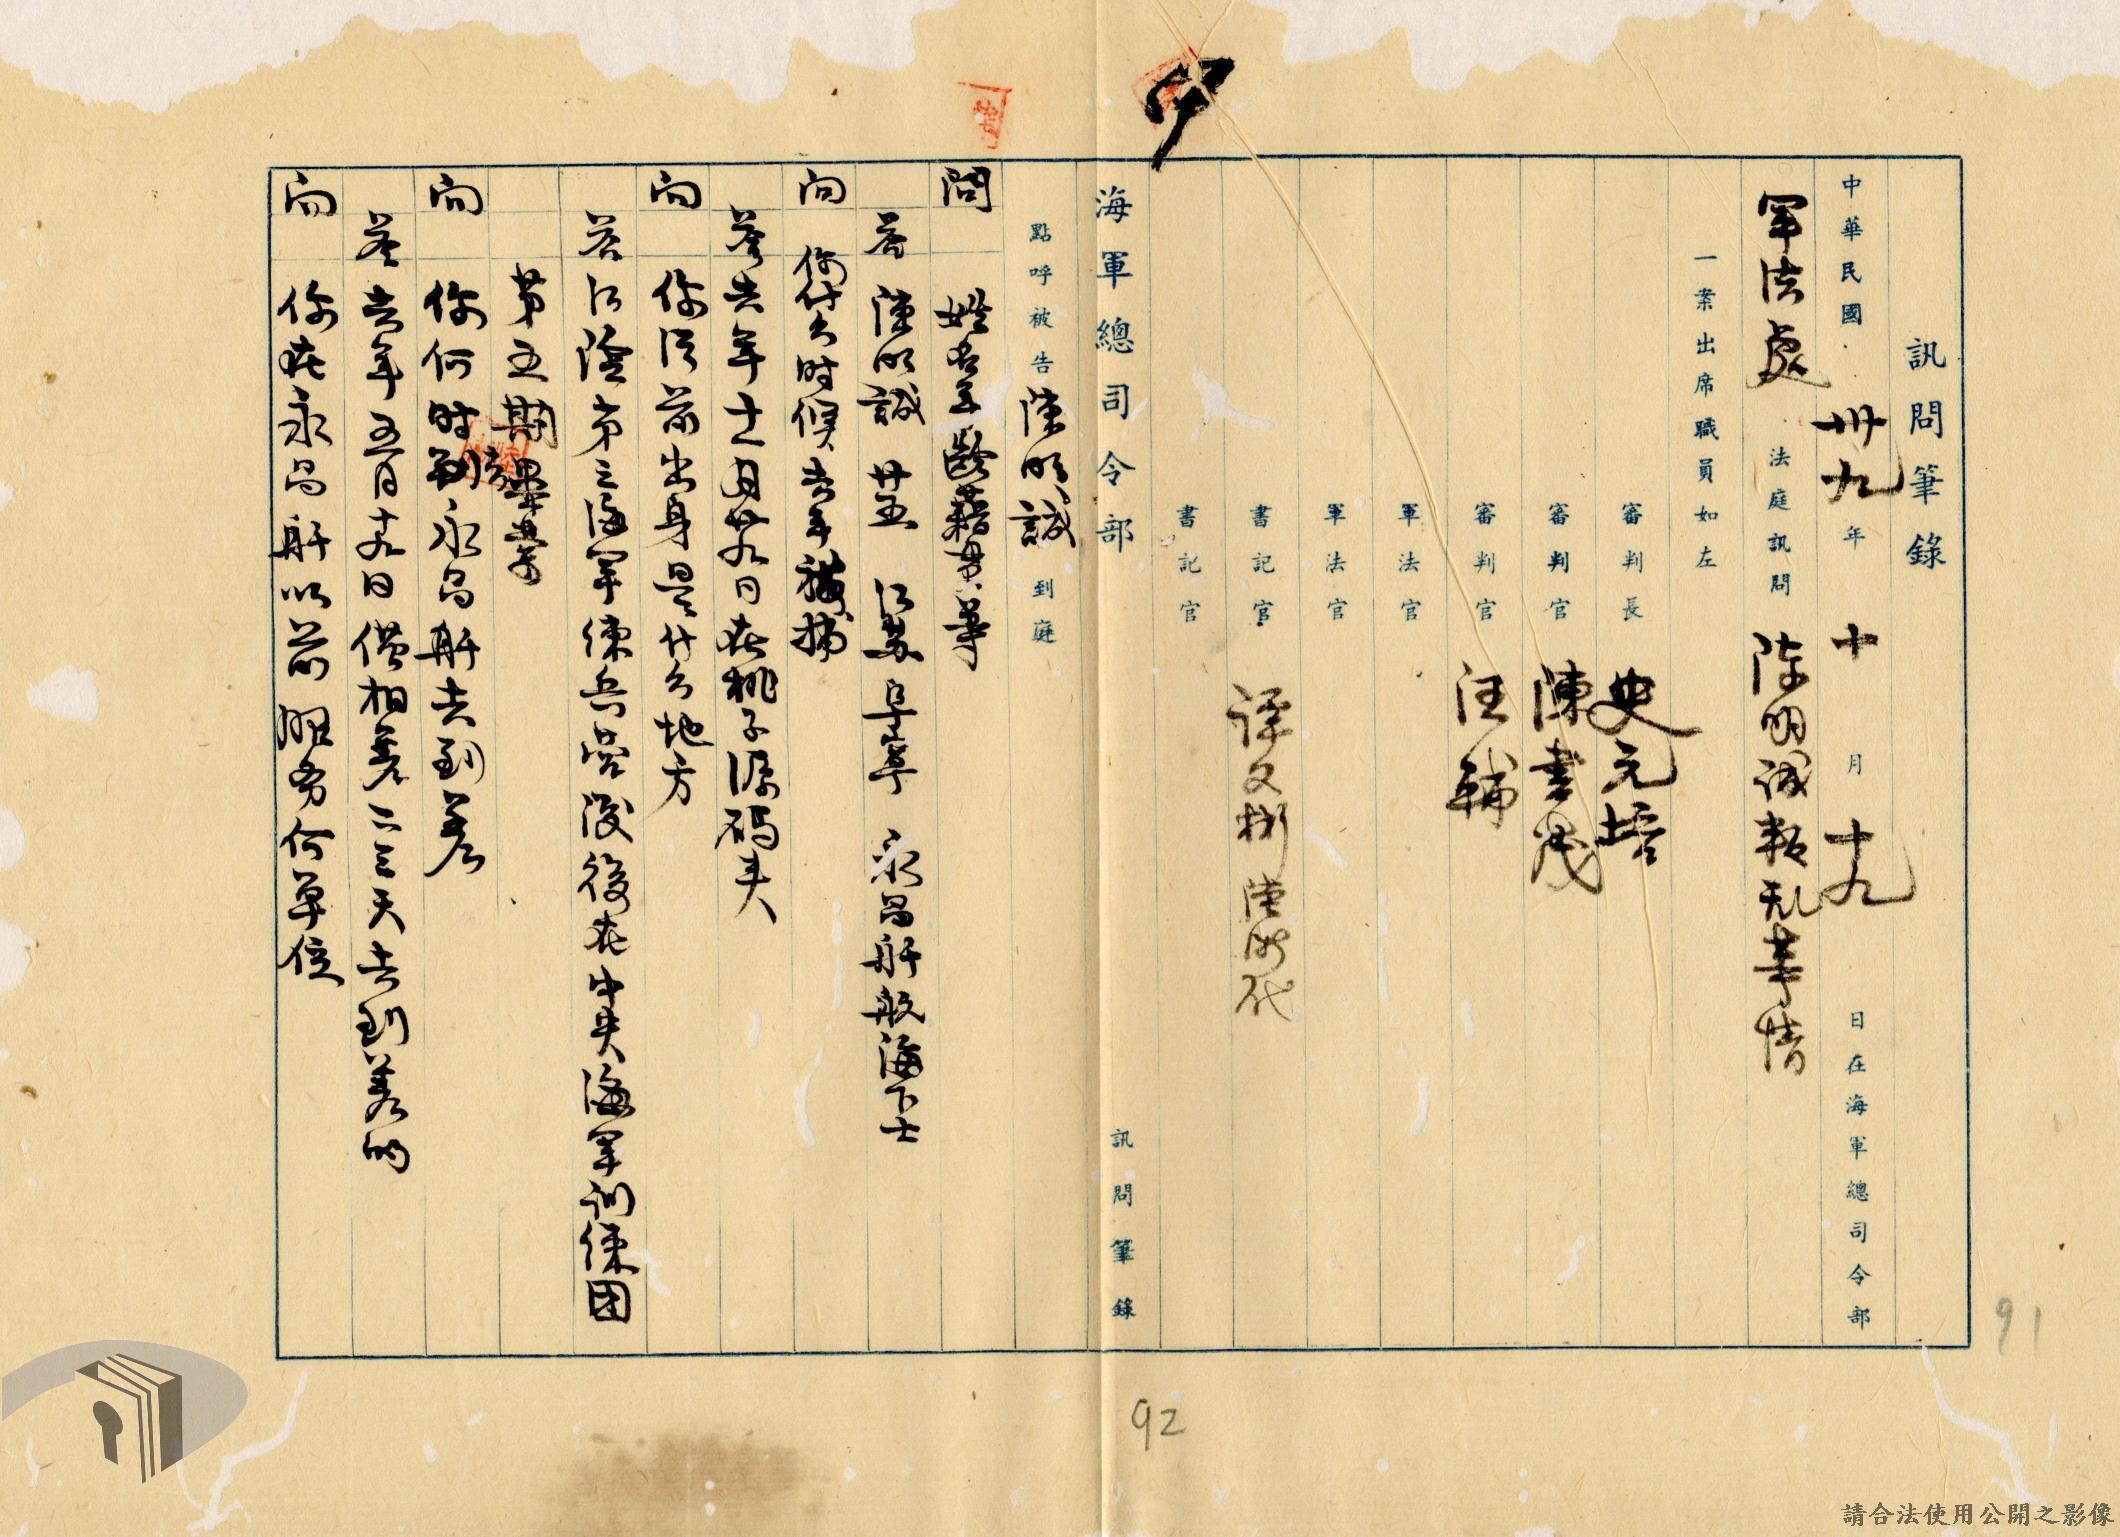 訊問筆錄
中華民國卅九年十月十九日在海軍總司令部
軍法處法庭訊問陳明誠叛乱事情
一案出席職員如左
審判長 史元培
審判官 陳書茂
審判官 汪輔
軍法官
軍法官
書記官 譚文彬 代
書記官
海軍總司令部 訊問筆錄
點呼被告陳明誠到庭
問 姓名年齡籍貫等
答 陳明誠 廿五 江苏阜寧 永昌舰舣海下士
问 你什么时候去年被捕
答 去年十一月廿九日在桃子源码头
问 你从前出身是什么地方
答 江陰第三海軍练兵营後後在中央海軍训练团
第五期畢業
问 你何时到永昌舰去到差
答 去年五月十九日僅相差二三天去到差的
问 你在永昌舰以前服务何单位
91
92
請合法使用公開之影像